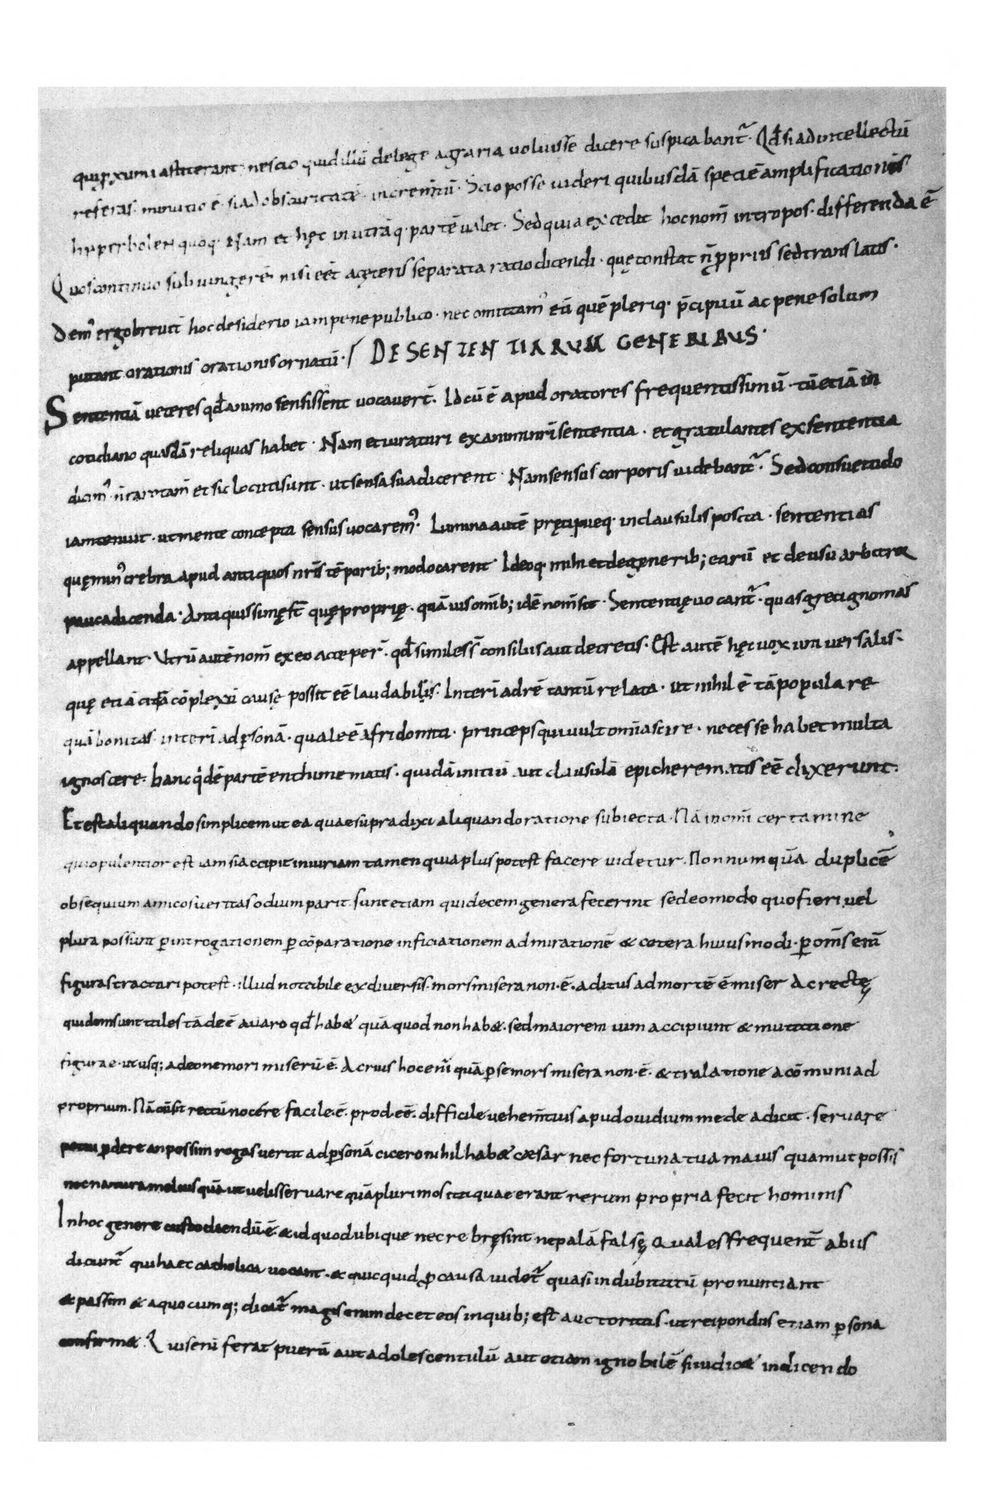 qui ꝓxumi astiterant · nescio quid illū de lege agraria uoluisse dicere suspicabant᷑ · Qđ si ad intellectū
referas · minutio ē · si ad obscuritatē · incremtū · Scio posse uideri quibusdā speciē amplificationis
hyperbolen quoq· Nam et hęc in utrāq· partē ualet · Sed quia excedit hoc nom̄ in tropos · differenda ē
Quos continuo subiungerē nisi eēt a cęteris separata ratio dicendi · quę constat n̄ ꝓpriis sed translatis ·
Dem᷒ ergo breuit̄ hoc desiderio iam pene publico · nec omittam᷒ eū quē pleriq· p̄cipuū ac pene solum
putant orationis orationis ornatū · / DE SENTENTIARUM GENERIBUS ·
Sententiā ueteres qđ animo sensissent uocauer̄t · Id cū ē apud oratores frequentissimū · tū etiā in
cotidiano quasdā reliquias habet · Nam et iuraturi ex animi nr̄i sententia · et gratulantes ex sententia
dicim᷒ · n̄ raro tam̄ et sic locuti sunt · ut sensa sua dicerent · Nam sensus corporis uidebant᷑ · Sed consuetudo
iam tenuit · ut mente concepta sensus uocarem᷒ · Lumina autē pręcipueq· in clausulis posita · sententias
quę min᷒ crebra apud antiquos nr̄is tēporib; modo carent · Ideoq· mihi et de generib; earū et de usu arbitror
pauca dicenda · Antiquissimę st̄ quę proprię · quāuis om̄ib; idē nom̄ sit · Sententię uocant᷑ · quas greci gnomas
appellant · Utrū autē nom̄ ex eo acceper̄ · qđ similes s̄ consiliis aut decretis · Est autē hęc uox uniuersalis ·
quę etiā citrā cōplexū causę possit eē laudabilis · Interī ad rē tantū relata · ut nihil ē tā populare
quā bonitas interī ad ꝑsonā · quale ē afri domiti · princeps qui uult om̄ia scire · necesse habet multa
ignoscere · hanc q'dē partē enthimematis · quidā initiū aut clausulā epicherematis eē dixerunt ·
Et est aliquando simplicem ut ea quae supra dixi aliquando ratione subiecta · Nā in om̄i certamine
qui opulentior est iam si accipit iniuriam tamen quia plus potest facere uidetur · Non numquā duplicē
obsequium amicos ueritas odium parit sunt etiam qui decem genera fecerint sed eo modo quo fieri uel
plura possunt ꝑ introgationem ꝑ cōparatione inficiationem admirationē & cetera huius modi · ꝑ om̄s enī
figuras tractari potest · illud notabile ex diuersis · mors misera non · ē · aditus ad mortē ē miser Ac rectę
quidem sunt tales tā deē auaro qđ hab& quā quod non hab& · sed maiorem uim accipiunt & mutatione
figurae · ut usq; adeo ne mori miserū · ē · Acrius hoc enī quā ꝑ se mors misera non · ē · & tralatione a cōmuni ad
proprium · Nā cū sit rectū nocére facile · ē · prodeē · difficile uehem̄tius apud ouidium medea dicit · seruare
potui ꝑdere an possim rogas uertit ad ꝑsonā cicero nihil hab& cæsar nec fortuna tua maius quam ut possis
nec natura melius quā ut uelis seruare quā plurimos ita quae erant rerum propria fecit hominis
In hoc genere custodiendū · ē · & id quod ubique nec rebręsint ne palā falsę Quales frequent̄ ab iis
dicunt᷑ qui haec catholica uocant · & quicquid ꝓ causa uidet᷑ quasi indubitatū pronuntiant
& passim & a quocumq; dicat᷑ magis enim decet eos in quib; est auctoritas · ut rei pondus etiam ꝑsona
confirm& · Quis enī ferat puerū aut adolescentulū aut etiam ignobilē si iudic& in dicendo